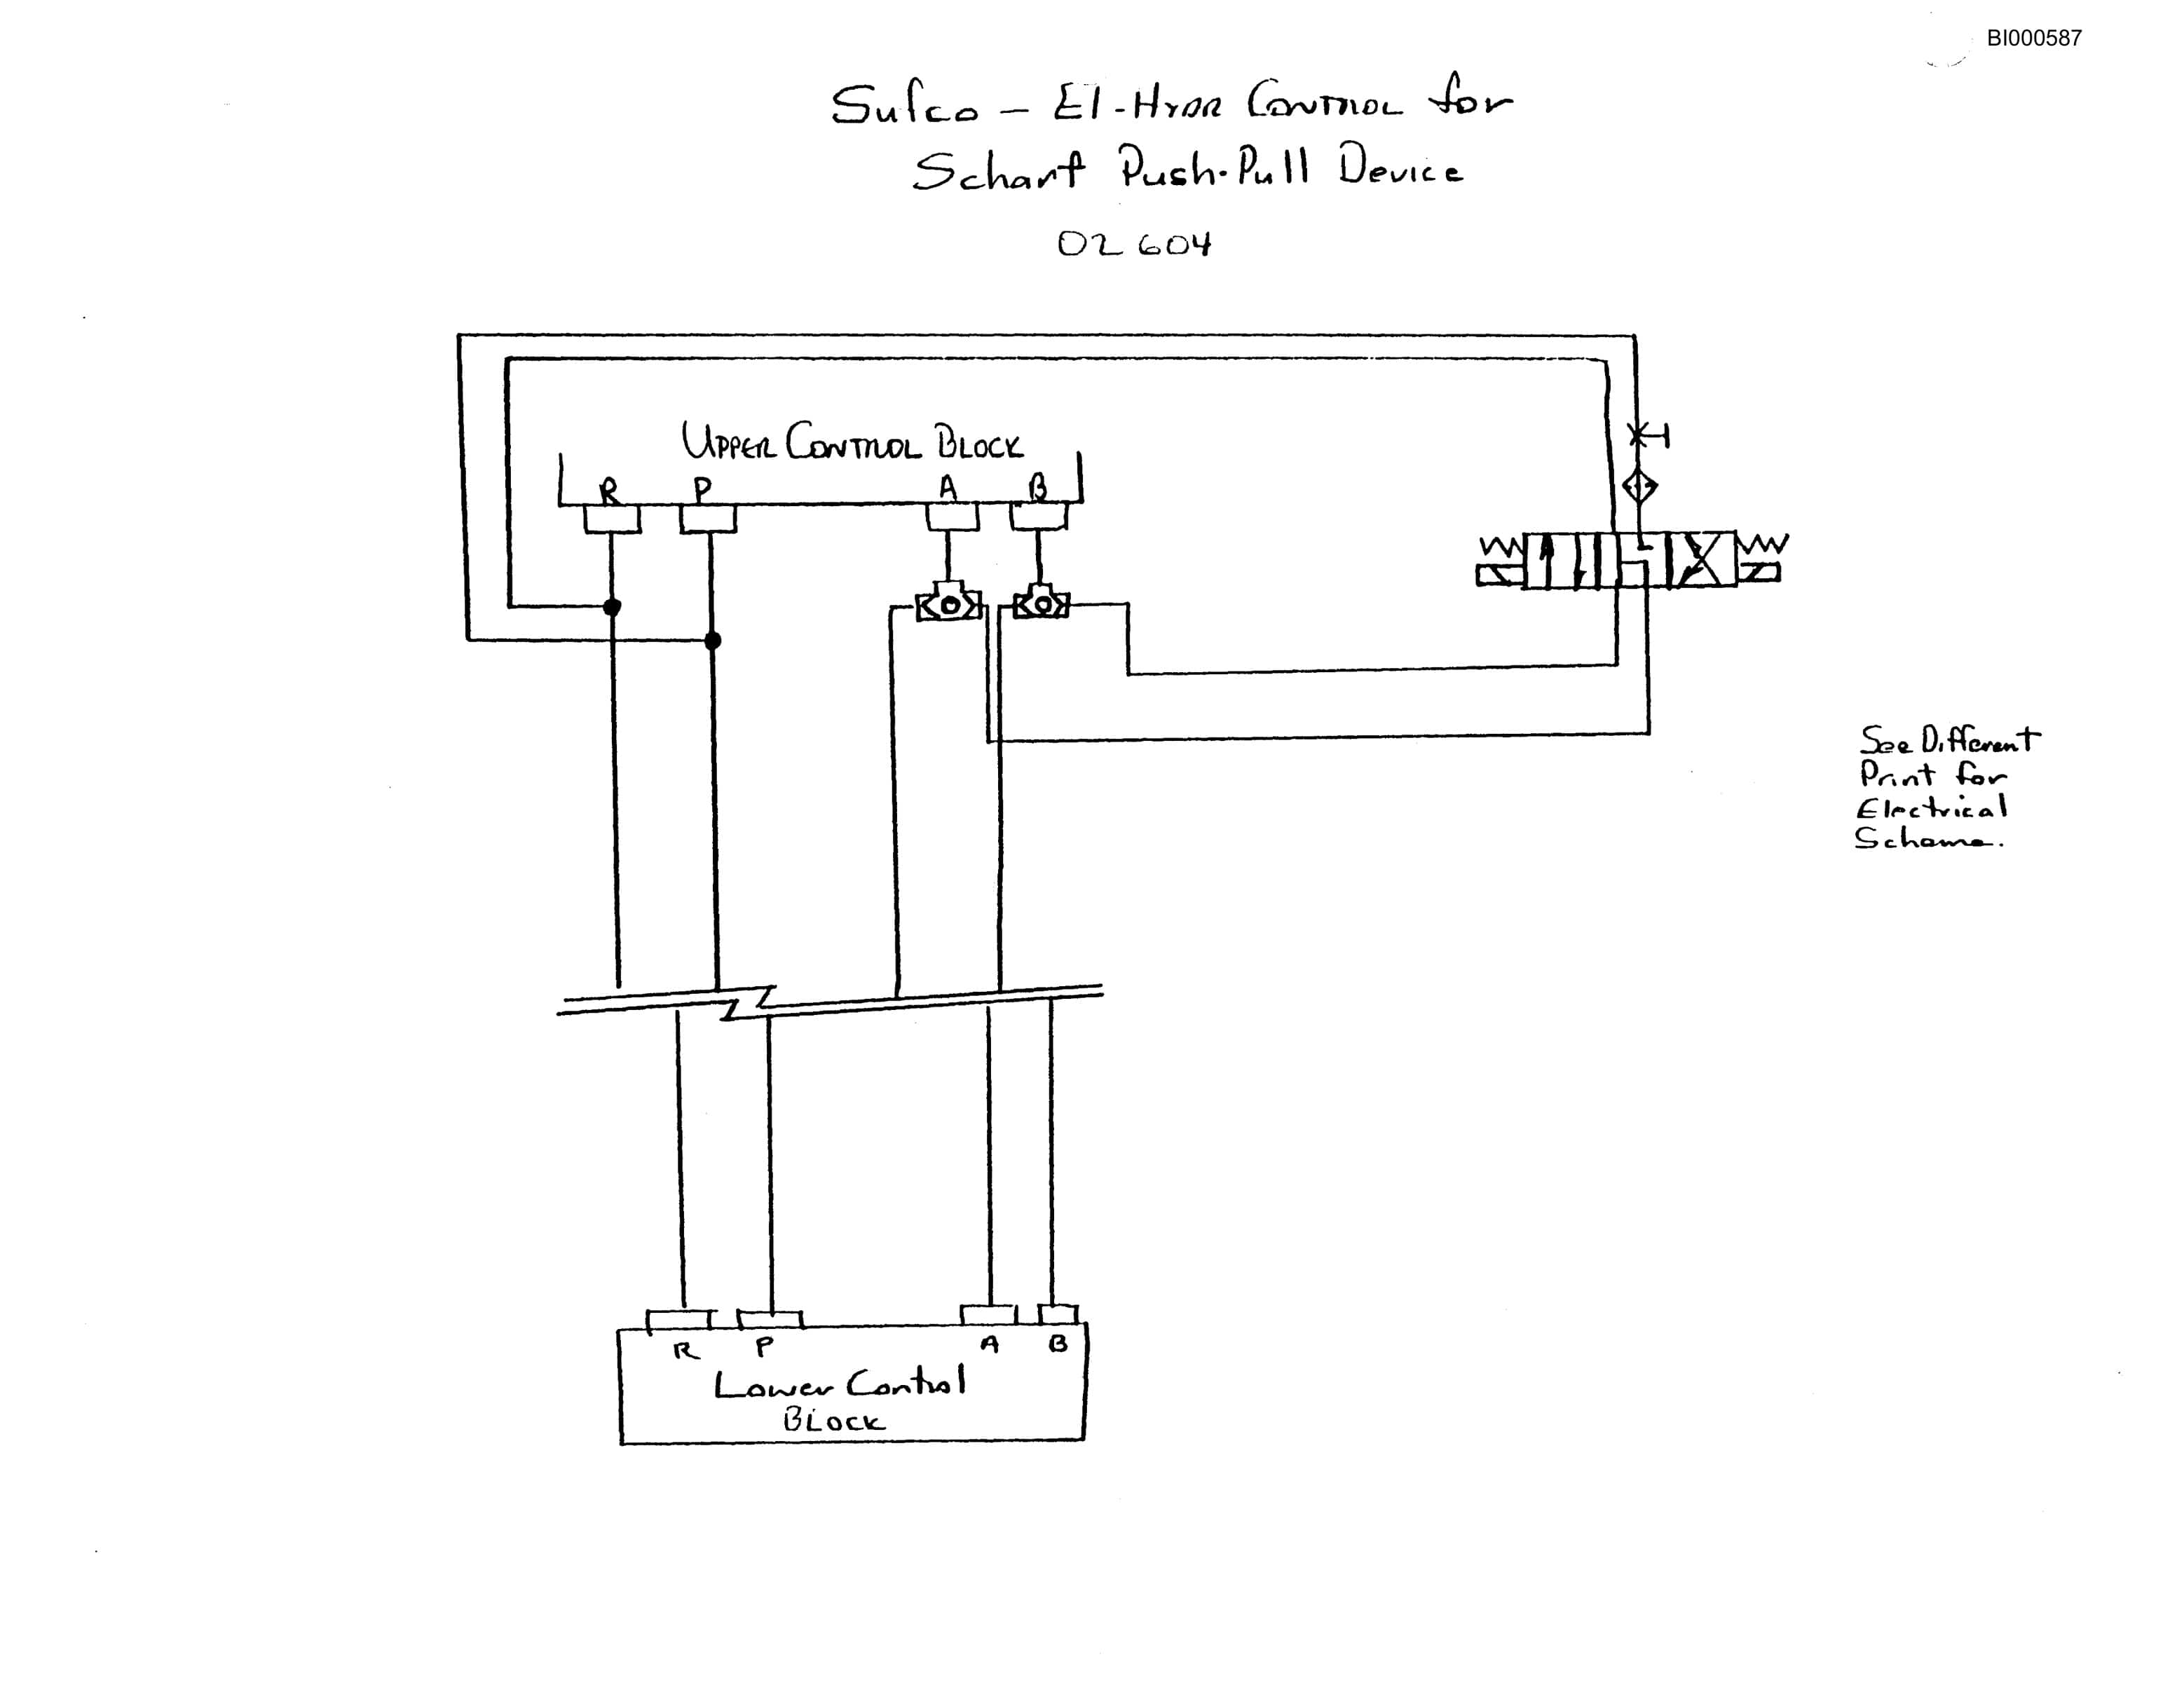 BI000587
Sufco - El-Hydr Control for
Scharf Push-Pull Device
02604
Upper Control Block
R P A B
See Different
Print for
Electrical
Scheme.
R P A B
Lower Control
Block